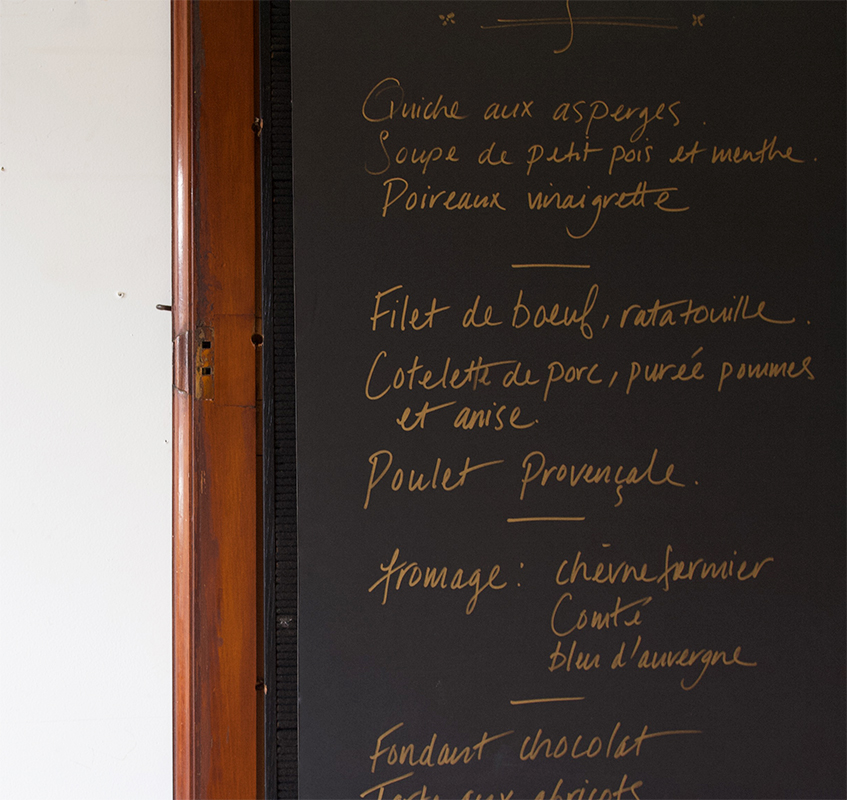 Quiche aux asperges.
Soupe de petit pois et menthe.
Poireaux vinaigrette
Filet de boeuf, ratatouille.
Cotelette de porc, puréé pommes
et anise.
Poulet Provençale.
fromage: chèvre fermier
Comté
bleu d'auvergne
Fondant chocolat
Tarte aux abricots